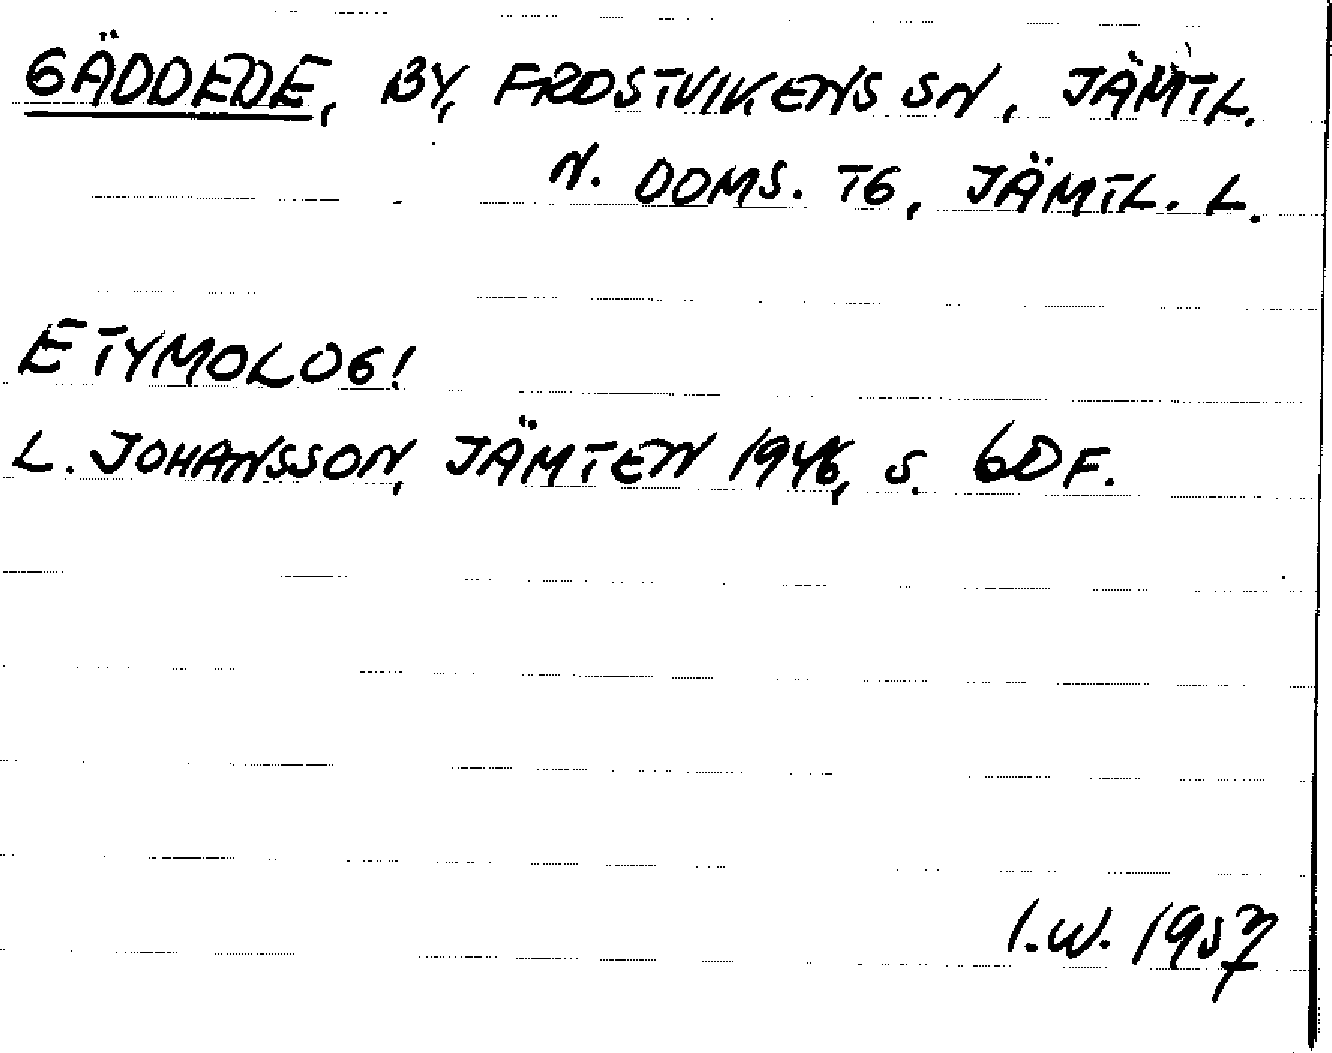 GÄDDEDE, BY, FROSTVIKENS SN, JÄMTL.
N. DOMS. TG, JÄMTL. L.
ETYMOLOGI
L. JOHANSSON, JÄMTEN 1946, S. 60 F.
I.W. 1957